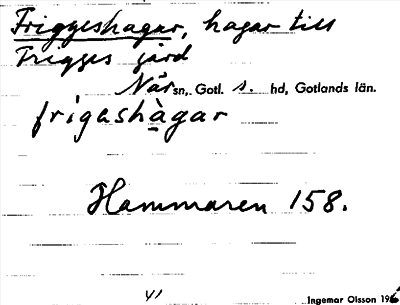 Friggeshagar, hagar till
Frigges gård
När sn, Gotl. s. hd, Gotlands län.
frigashàgar
Hammaren 158.
41
Ingemar Olsson 196